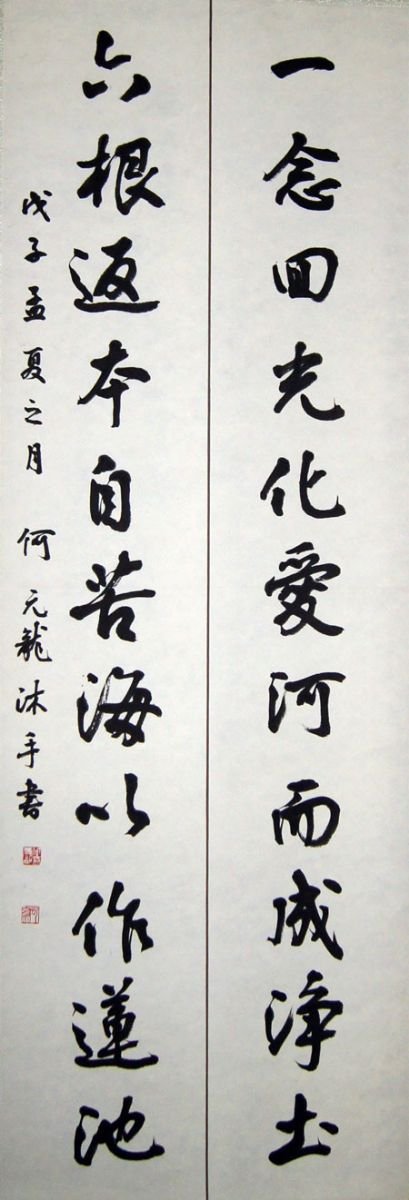 一念回光化愛河而成淨土
六根返本自苦海以作蓮池
戊子孟夏之月 何元龍沐手書